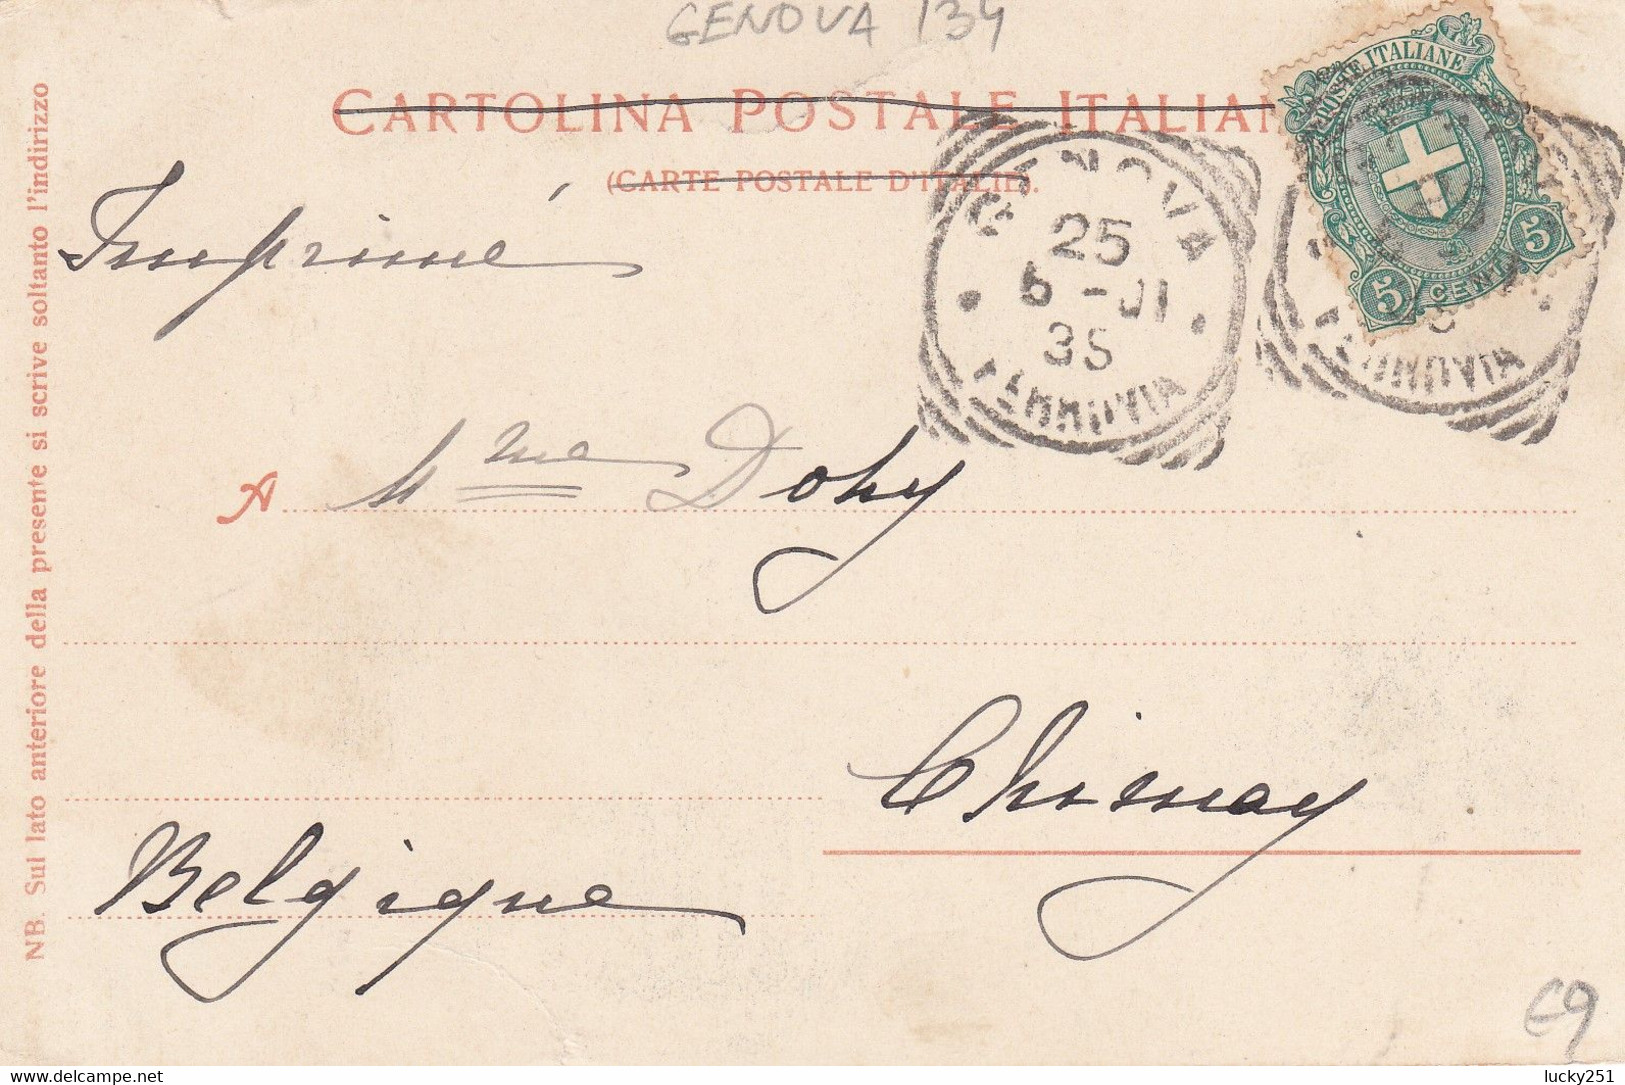 GENOVA 134
CARTOLINA POSTALE ITALIAN
(CARTE POSTALE D'ITALIE).
POSTE ITALIANE
5 CENT. 5
GENOVA
25
5-01
3S
FERROVIA
FERROVIA
Imprimé
A Mme Dohy
Chimay
Belgique
NB. Sul lato anteriore della presente si scrive soltanto l'indirizzo
€9
lucky251